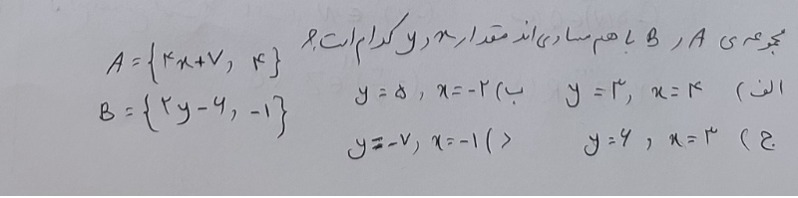 مجموعه ی A و B با هم مساوی اند مقدار x و y کدام است؟
A = {۴x+۷, ۴}
B = {۲y-۶, -۱}
الف) x=۴ , y=۳ ب) x=-۲ , y=۵
ج) x=۳ , y=۶ د) x=-۱ , y=-۷